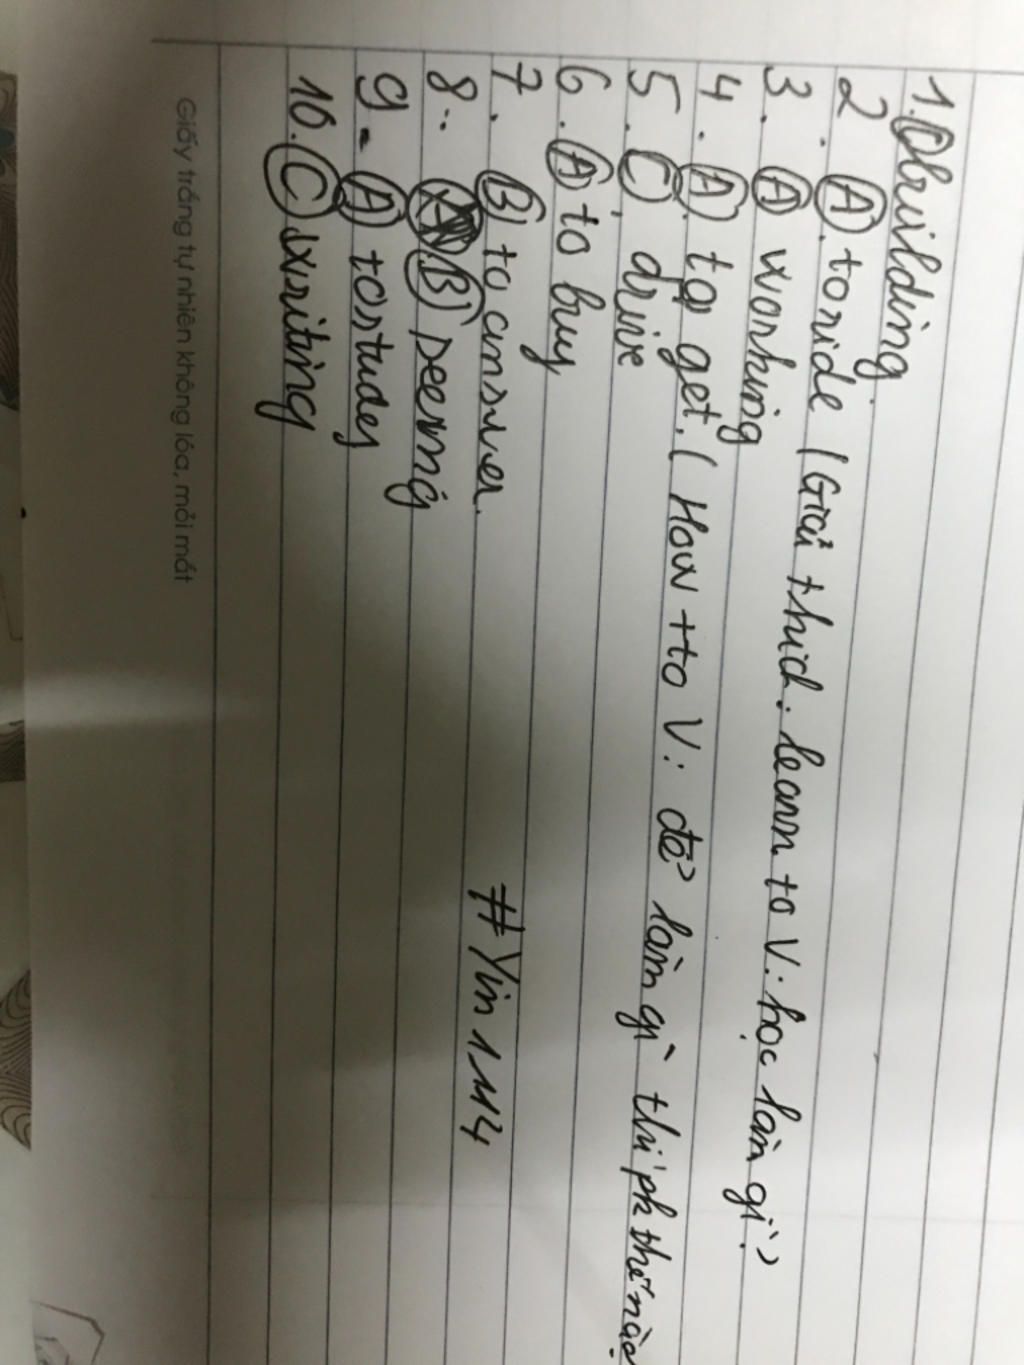 1. D building
2. A. to ride (Giải thích: learn to V: học làm gì?)
3. A working
4. A. to get. (How + to V: để làm gì thì ph thế nào
5. C. drive
6. A to buy
7. B to answer.
8. B seeing
9. A to study
10. C writing
#Yin1114
Giấy trắng tự nhiên không lóa, mỏi mắt